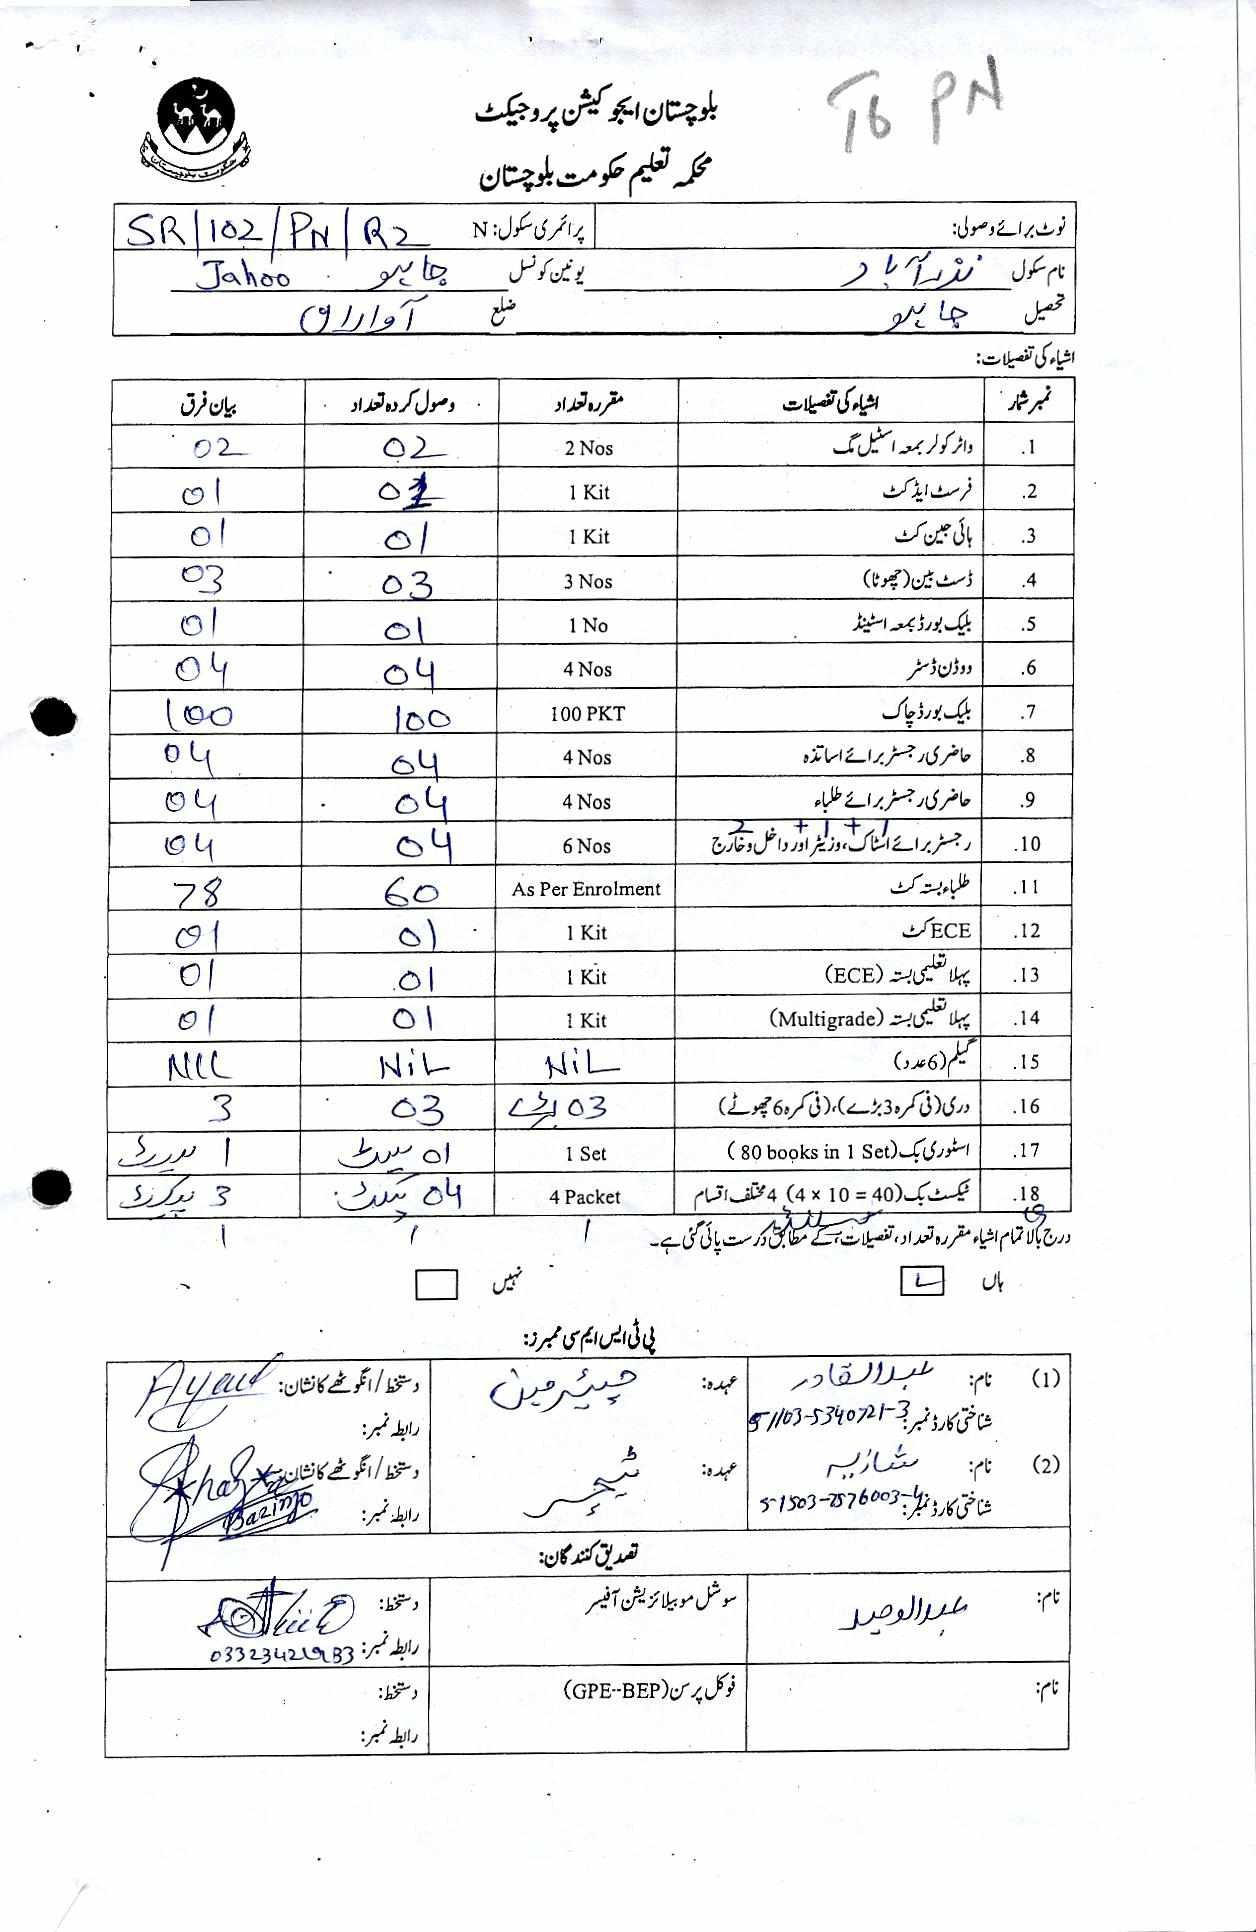 T6 PN
بلوچستان ایجوکیشن پروجیکٹ
محکمہ تعلیم حکومت بلوچستان
نوٹ برائے وصولی: پرائمری سکول: N SR/102/PN/R2
نام سکول نذرآباد یونین کونسل جاہو Jahoo
تحصیل جاہو ضلع آواران
اشیاء کی تفصیلات:
نمبر شمار اشیاء کی تفصیلات مقررہ تعداد وصول کردہ تعداد بیان فرق
1. واٹر کولر بمعہ اسٹیل مگ 2 Nos 02 02
2. فرسٹ ایڈ کٹ 1 Kit 01 01
3. ہائی جین کٹ 1 Kit 01 01
4. ڈسٹ بین (چھوٹا) 3 Nos 03 03
5. بلیک بورڈ بمعہ اسٹینڈ 1 No 01 01
6. ووڈن ڈسٹر 4 Nos 04 04
7. بلیک بورڈ چاک 100 PKT 100 100
8. حاضری رجسٹر برائے اساتذہ 4 Nos 04 04
9. حاضری رجسٹر برائے طلباء 4 Nos 04 04
2 + 1 + 1
10. رجسٹر برائے اسٹاک، وزیٹر اور داخل و خارج 6 Nos 04 04
11. طلباء بستہ کٹ As Per Enrolment 60 78
12. ECE کٹ 1 Kit 01 01
13. پہلا تعلیمی بستہ (ECE) 1 Kit 01 01
14. پہلا تعلیمی بستہ (Multigrade) 1 Kit 01 01
15. گیلم (6 عدد) NiL NiL NIL
16. دری (فی کمرہ 3 بڑے)، (فی کمرہ 6 چھوٹے) 03 بڑے 03 3
17. اسٹوری بک (80 books in 1 Set) 1 Set 01 سیٹ 1
18. ٹیکسٹ بک (4 × 10 = 40) 4 مختلف اقسام 4 Packet 04 3
درج بالا تمام اشیاء مقررہ تعداد، تفصیلات، کے مطابق درست پائی گئی ہے۔
ہاں نہیں
پی ٹی ایس ایم سی ممبرز:
(1) نام: عبدالقادر عہدہ: چیئرمین دستخط/انگوٹھے کا نشان:
شناختی کارڈ نمبر: 51103-5340721-3 رابطہ نمبر:
(2) نام: شازیہ عہدہ: ٹیچر دستخط/انگوٹھے کا نشان:
شناختی کارڈ نمبر: 51503-7576003-4 رابطہ نمبر:
تصدیق کنندگان:
نام: عبدالوحید سوشل موبیلائزیشن آفیسر دستخط:
رابطہ نمبر:
نام: فوکل پرسن (GPE--BEP) دستخط:
رابطہ نمبر: